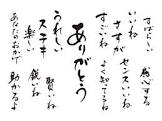 すばらしい
感心する
いいね
センスいいね
さすが
よく知ってるね
すごいね
ありがとう
うれしい
賢いね
ステキ
鋭いね
楽しい
助かるよ
あなたのおかげ